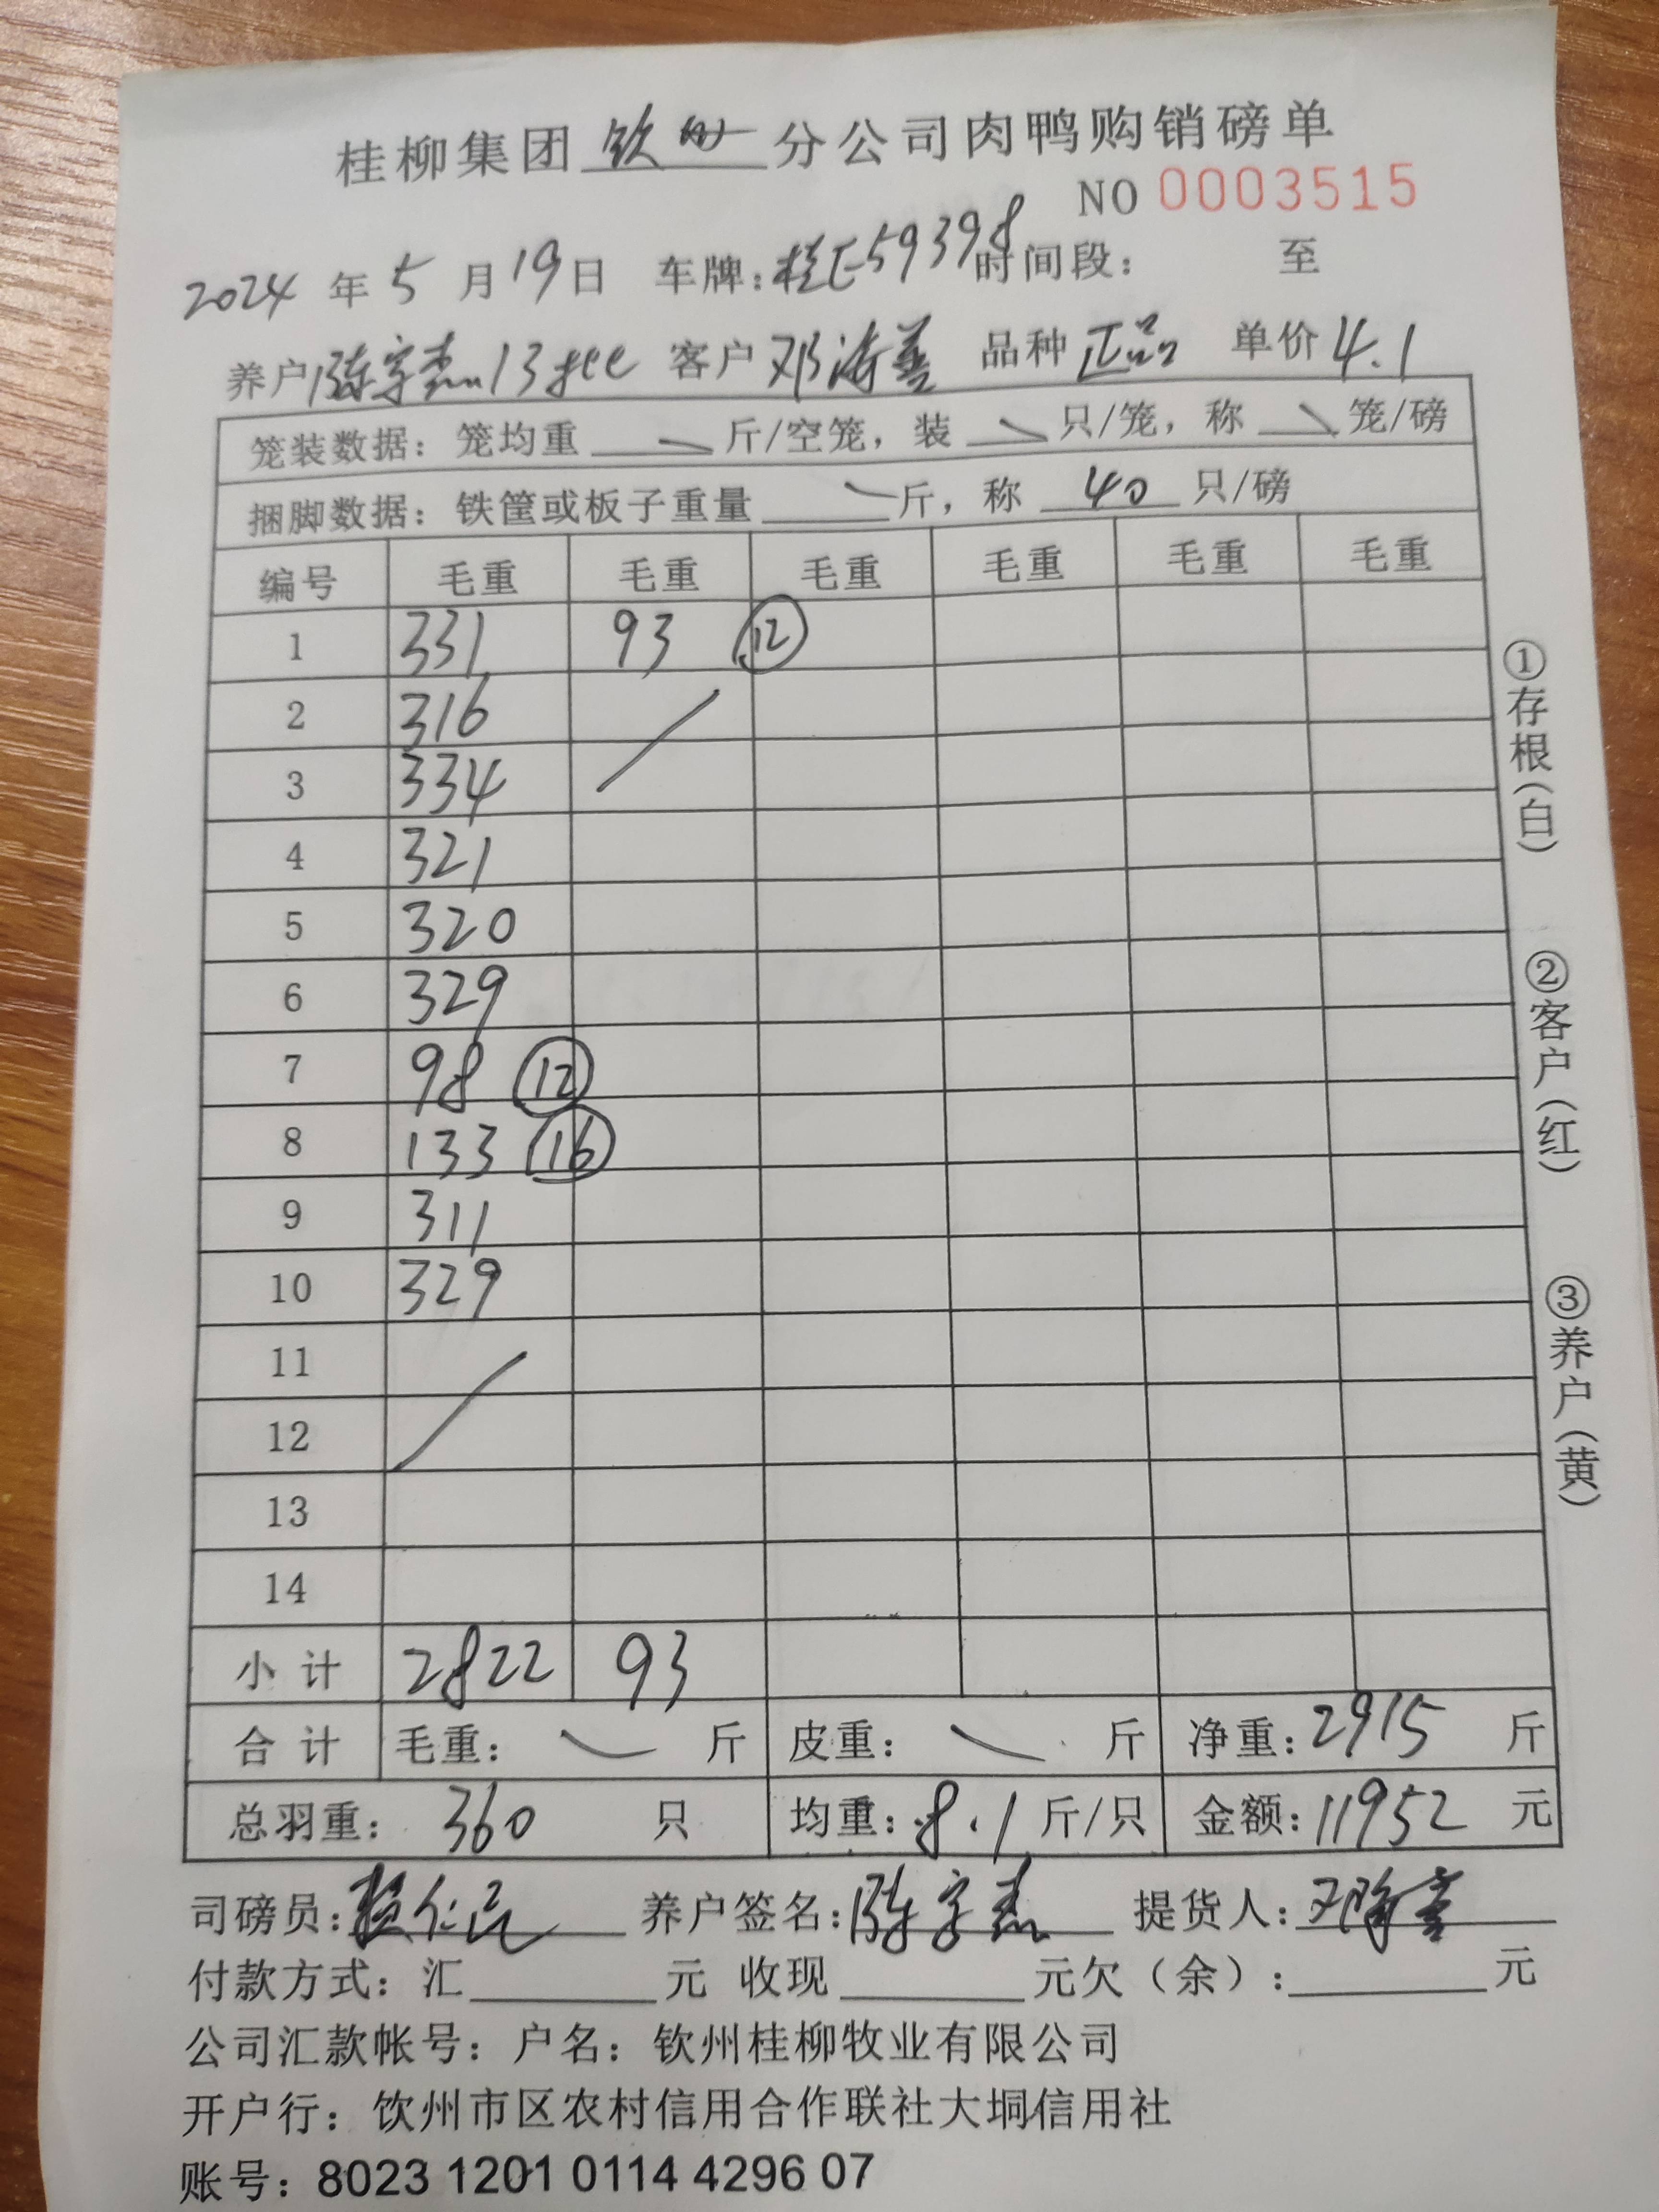 桂柳集团 钦州 分公司肉鸭购销磅单
NO 0003515
2024 年 5 月 19 日 车牌：桂E59398 时间段： 至
养户 陈宇杰 13 客户 邓 品种 正品 单价 4.1
笼装数据：笼均重 ＼ 斤/空笼，装 ＼ 只/笼，称 ＼ 笼/磅
捆脚数据：铁筐或板子重量 ＼ 斤，称 40 只/磅
编号 毛重 毛重 毛重 毛重 毛重 毛重
1 331 93 ⑫
2 316
3 334
4 321
5 320
6 329
7 98 ⑫
8 133 ⑯
9 311
10 329
11
12
13
14
小计 2822 93
合计 毛重： ＼ 斤 皮重： ＼ 斤 净重：2915 斤
总羽重： 360 只 均重：8.1 斤/只 金额：11952 元
司磅员： 养户签名：陈宇杰 提货人：
付款方式：汇______元 收现______元欠（余）：______元
公司汇款帐号：户名：钦州桂柳牧业有限公司
开户行：饮州市区农村信用合作联社大垌信用社
账号：8023 1201 0114 4296 07
①存根（白）
②客户（红）
③养户（黄）